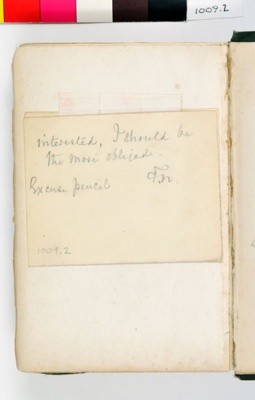 1009.2
interested, I should be
the more obliged.
Excuse pencil
1009.2